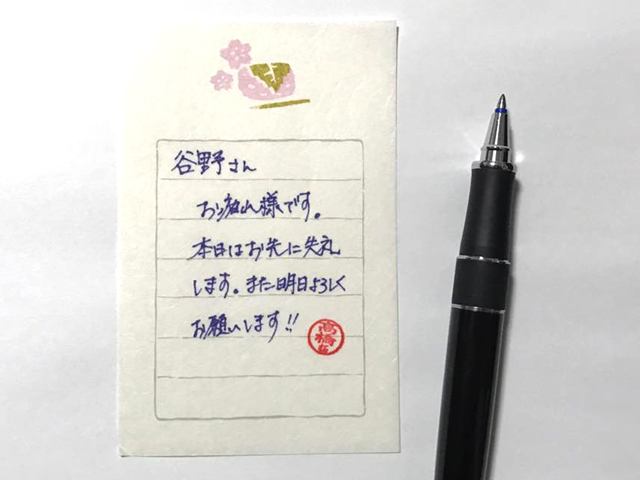 谷野さん
お疲れ様です。
本日はお先に失礼
します。また明日よろしく
お願いします!!
高橋